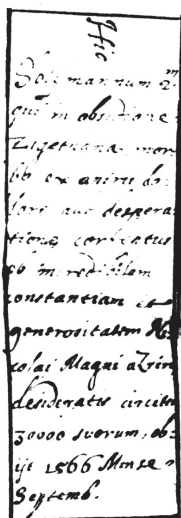 Hic
Solymannum 2m
qui in obsidione
Zigethana mor
bo ex animi do
lore aut despera
tione correptus
ob incredibilem
constantiam et
generositatem Ni
colai Magni a Zrin
desideratis circiter
30000 suorum, ob:
ijt 1566 Mense
Septemb.